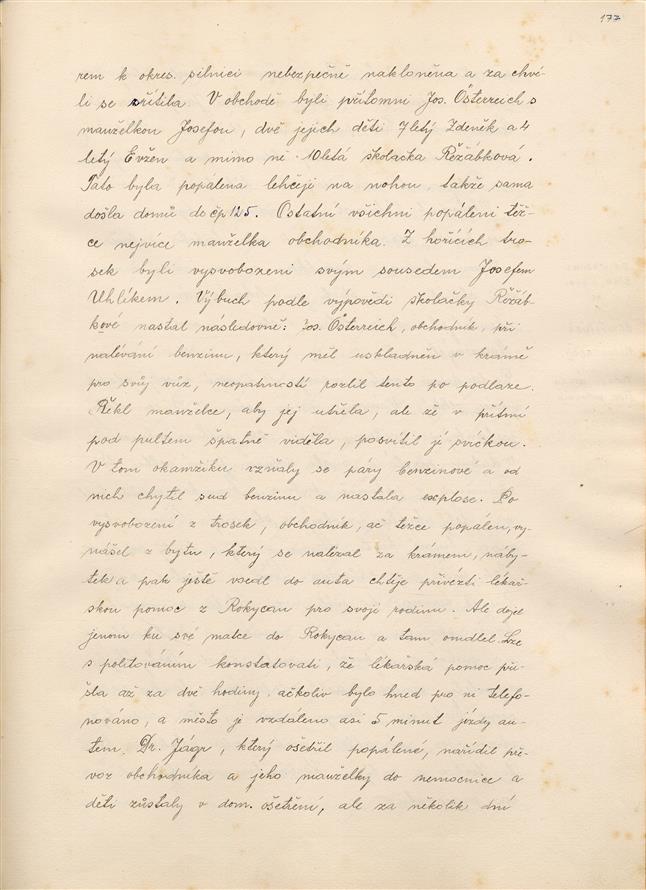 177
rem k okres. silnici nebezpečně nakloněna a za chví-
li se zřítila. V obchodě byli přítomni Jos. Österreich s
manželkou Josefou, dvě jejich děti 7letý Zdeněk a 4
letý Evžen a mimo ně 10letá školačka Řežábková.
Tato byla popálena lehčeji na nohou, takže sama
došla domů do čp 125. Ostatní všichni popáleni těž-
ce nejvíce manželka obchodníka. Z hořících tro-
sek byli vysvobozeni svým sousedem Josefem
Uhlíkem. Výbuch podle výpovědi školačky Řežáb-
kové nastal následovně: Jos. Österreich, obchodník, při
nalévání benzinu, který měl uskladněn v krámě
pro svůj vůz, neopatrností rozlil tento po podlaze.
Řekl manželce, aby jej utřela, ale že v přítmí
pod pultem špatně viděla, posvítil jí svíčkou.
V tom okamžiku vzňaly se páry benzinové a od
nich chytil sud benzinu a nastala explose. Po
vysvobození z trosek, obchodník, ač těžce popálen, vy-
nášel z bytu, který se nalézal za krámem, náby-
tek a pak ještě vsedl do auta chtěje přivézti lékař-
skou pomoc z Rokycan pro svoji rodinu. Ale dojel
jenom ku své matce do Rokycan a tam omdlel. Lze
s politováním konstatovati, že lékařská pomoc při-
šla až za dvě hodiny, ačkoliv bylo hned pro ni telefo-
nováno, a město je vzdáleno asi 5 minut jízdy au-
tem. Dr. Jágr, který ošetřil popálené, nařídil pře-
voz obchodníka a jeho manželky do nemocnice a
děti zůstaly v dom. ošetření, ale za několik dní